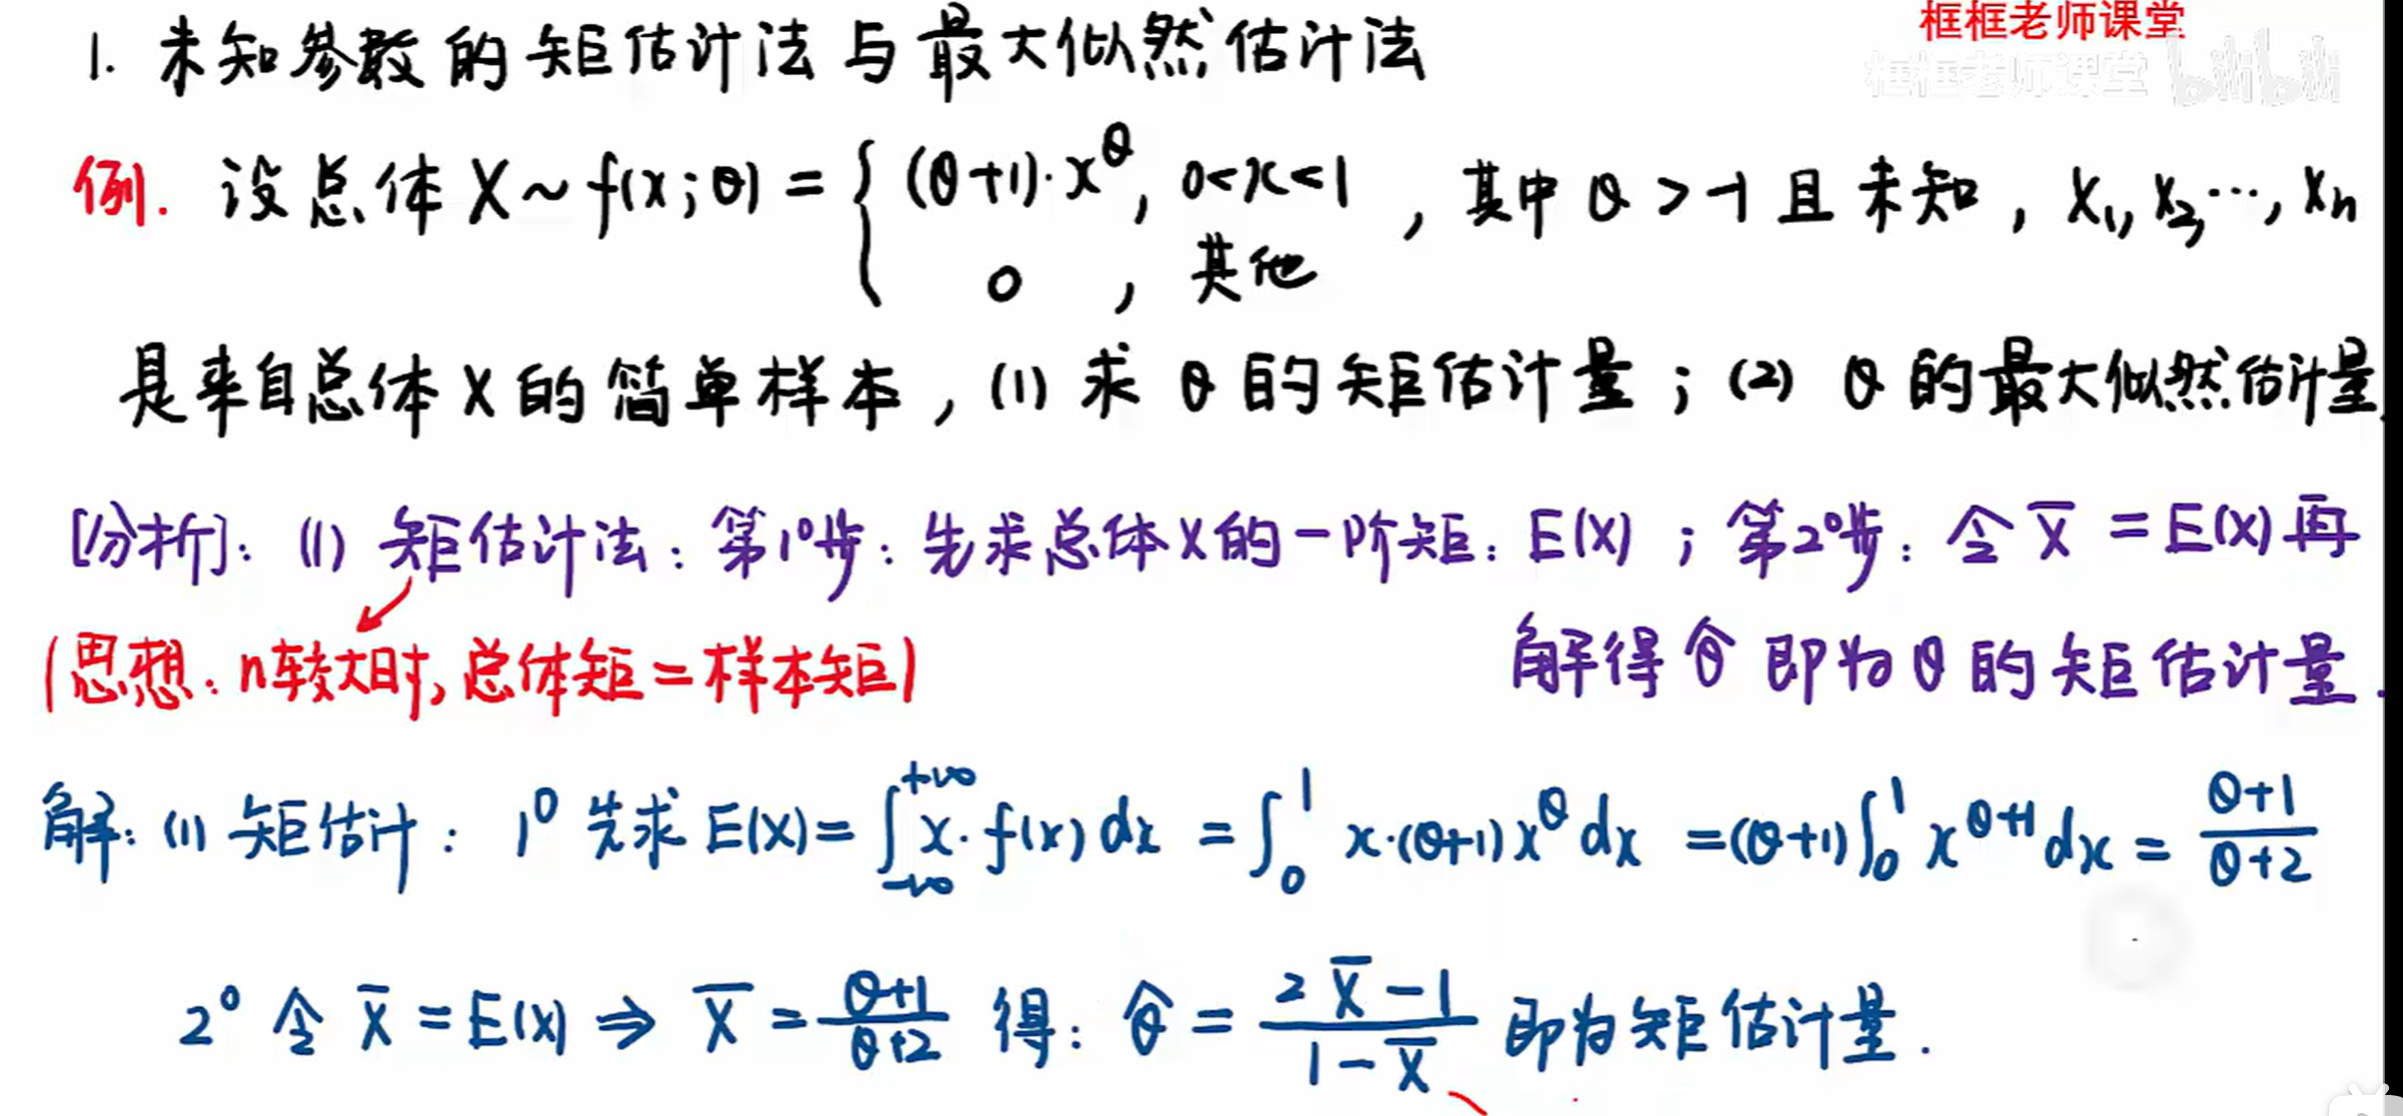 框框老师课堂
框框老师课堂 bilibili
1. 未知参数的矩估计法与最大似然估计法
例. 设总体 X ~ f(x;θ) = { (θ+1)·x^θ, 0<x<1 , 其中 θ > -1 且未知, X₁, X₂, …, Xn
0 , 其他
是来自总体 X 的简单样本, (1) 求 θ 的矩估计量; (2) θ 的最大似然估计量.
[分析]: (1) 矩估计法: 第1°步: 先求总体X的一阶矩: E(X) ; 第2°步: 令 X̅ = E(X) 再
解得 θ̂ 即为 θ 的矩估计量.
(思想: n较大时, 总体矩 = 样本矩)
解: (1) 矩估计: 1° 先求 E(X) = ∫_{-∞}^{+∞} x·f(x) dx = ∫_0^1 x·(θ+1)x^θ dx = (θ+1)∫_0^1 x^{θ+1} dx = (θ+1)/(θ+2)
2° 令 X̅ = E(X) ⇒ X̅ = (θ+1)/(θ+2) 得: θ̂ = (2X̅-1)/(1-X̅) 即为矩估计量.